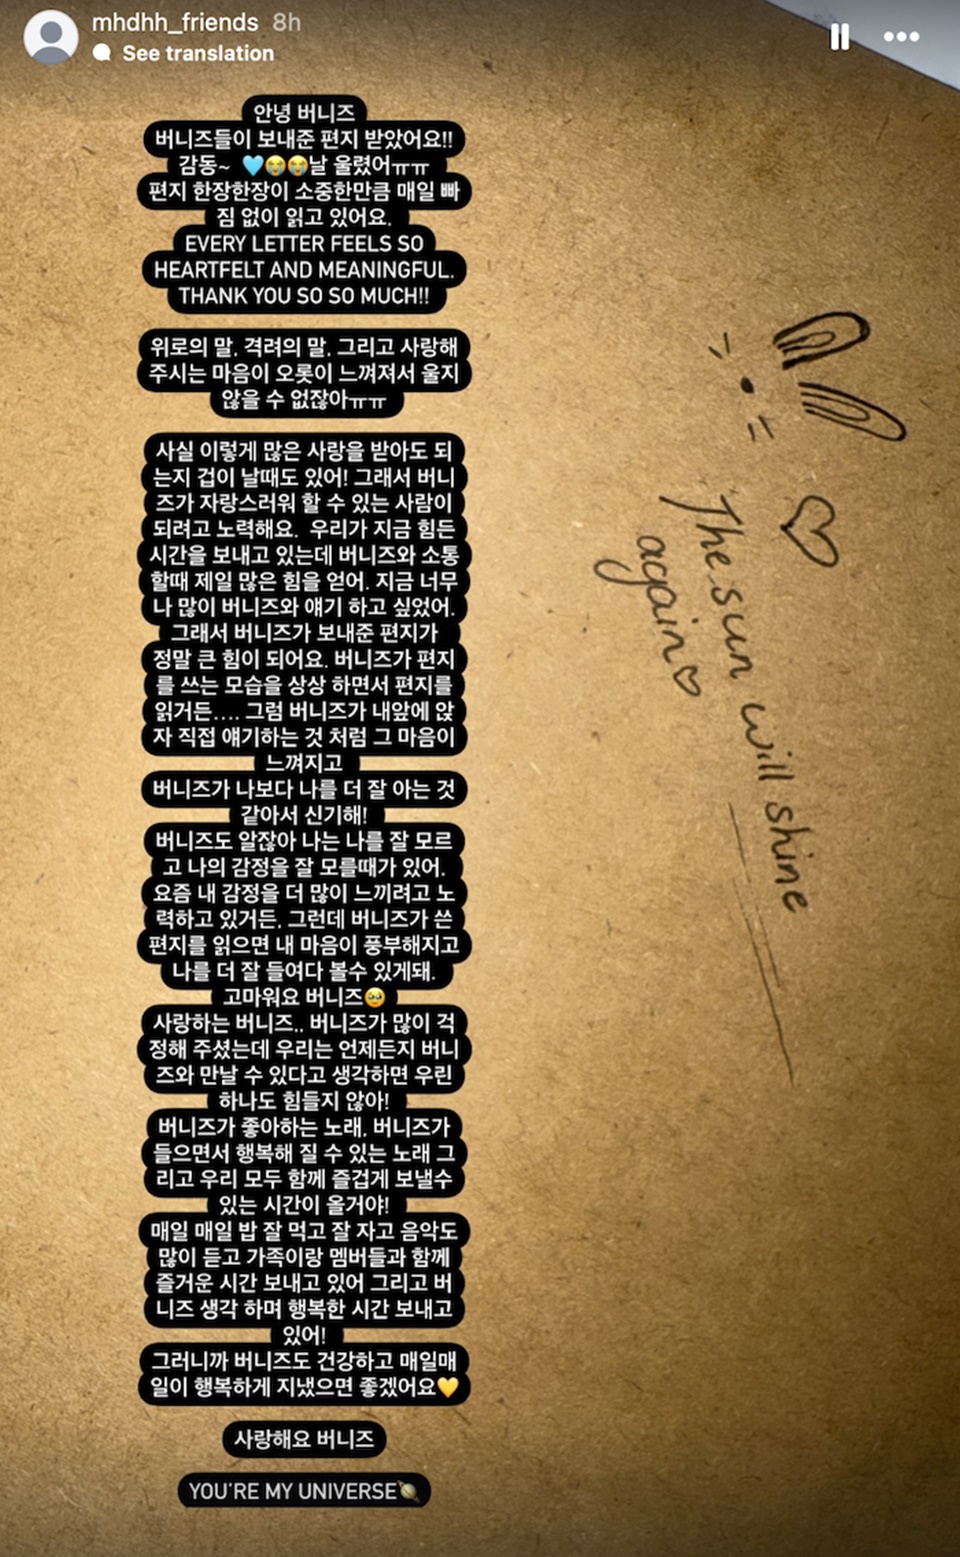 mhdhh_friends 8h
See translation
안녕 버니즈
버니즈들이 보내준 편지 받았어요!!
감동~ 🩵😭😭날 울렸어ㅠㅠ
편지 한장한장이 소중한만큼 매일 빠
짐 없이 읽고 있어요.
EVERY LETTER FEELS SO
HEARTFELT AND MEANINGFUL.
THANK YOU SO SO MUCH!!
위로의 말, 격려의 말, 그리고 사랑해
주시는 마음이 오롯이 느껴져서 울지
않을 수 없잖아ㅠㅠ
사실 이렇게 많은 사랑을 받아도 되
는지 겁이 날때도 있어! 그래서 버니
즈가 자랑스러워 할 수 있는 사람이
되려고 노력해요. 우리가 지금 힘든
시간을 보내고 있는데 버니즈와 소통
할때 제일 많은 힘을 얻어. 지금 너무
나 많이 버니즈와 얘기 하고 싶었어.
그래서 버니즈가 보내준 편지가
정말 큰 힘이 되어요. 버니즈가 편지
를 쓰는 모습을 상상 하면서 편지를
읽거든.... 그럼 버니즈가 내앞에 앉
자 직접 얘기하는 것 처럼 그 마음이
느껴지고
버니즈가 나보다 나를 더 잘 아는 것
같아서 신기해!
버니즈도 알잖아 나는 나를 잘 모르
고 나의 감정을 잘 모를때가 있어.
요즘 내 감정을 더 많이 느끼려고 노
력하고 있거든, 그런데 버니즈가 쓴
편지를 읽으면 내 마음이 풍부해지고
나를 더 잘 들여다 볼수 있게돼.
고마워요 버니즈🥹
사랑하는 버니즈.. 버니즈가 많이 걱
정해 주셨는데 우리는 언제든지 버니
즈와 만날 수 있다고 생각하면 우린
하나도 힘들지 않아!
버니즈가 좋아하는 노래, 버니즈가
들으면서 행복해 질 수 있는 노래 그
리고 우리 모두 함께 즐겁게 보낼수
있는 시간이 올거야!
매일 매일 밥 잘 먹고 잘 자고 음악도
많이 듣고 가족이랑 멤버들과 함께
즐거운 시간 보내고 있어 그리고 버
니즈 생각 하며 행복한 시간 보내고
있어!
그러니까 버니즈도 건강하고 매일매
일이 행복하게 지냈으면 좋겠어요💛
사랑해요 버니즈
YOU'RE MY UNIVERSE🪐
The sun will shine
again♡